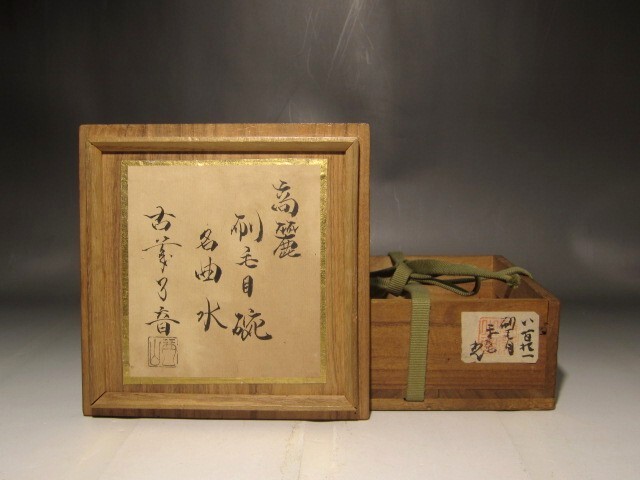 高麗
刷毛目碗
名曲水
古筆了音
八百拾一
刷毛目